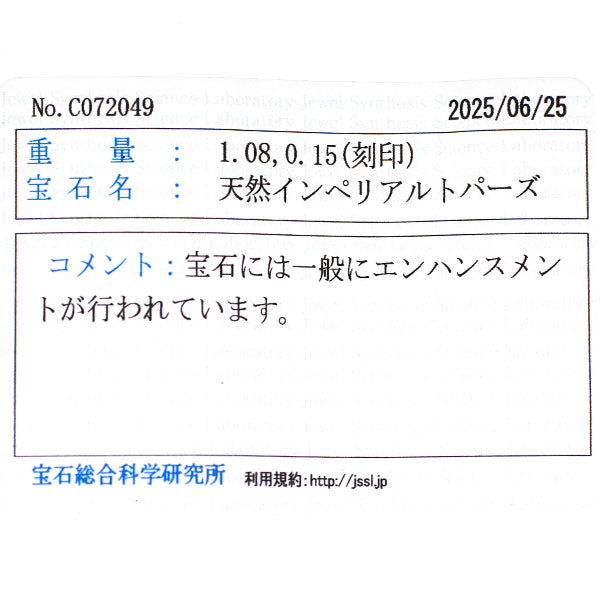 No. C072049 2025/06/25
重量: 1.08,0.15(刻印)
宝石名: 天然インペリアルトパーズ
コメント:宝石には一般にエンハンスメン
トが行われています。
宝石総合科学研究所 利用規約:http://jssl.jp